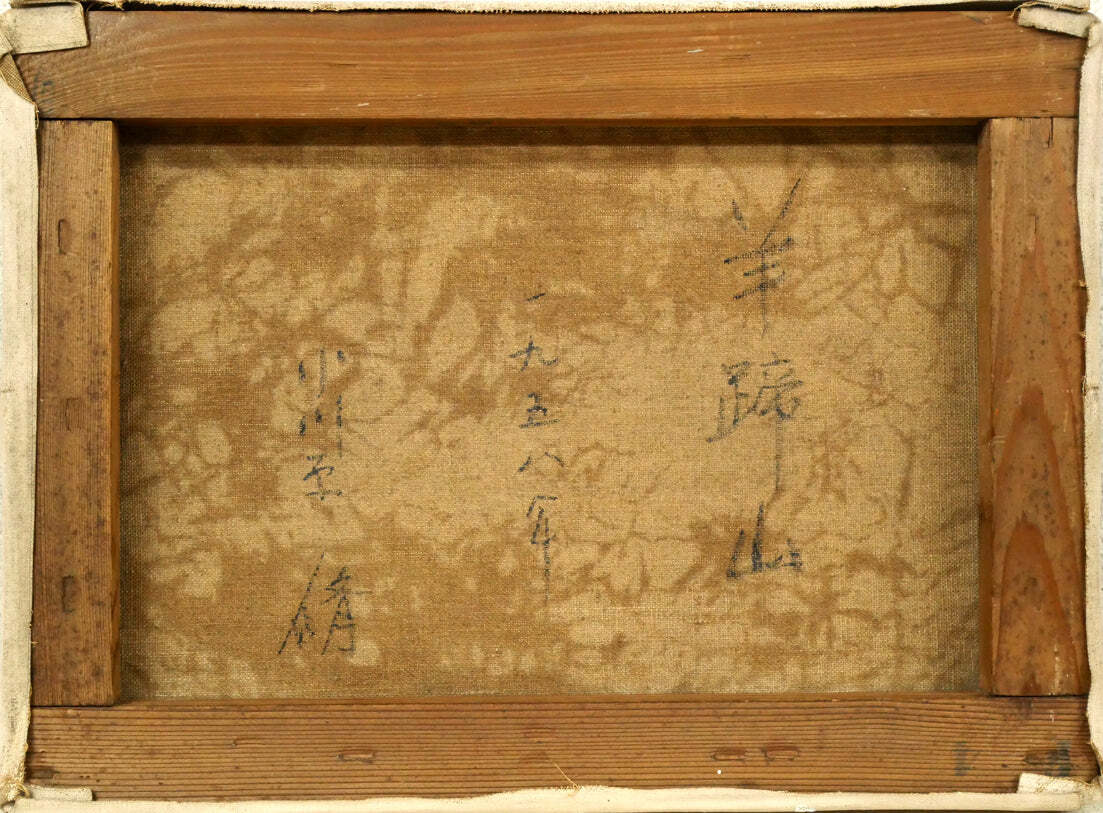 羊蹄山
一九五八年
小川原脩